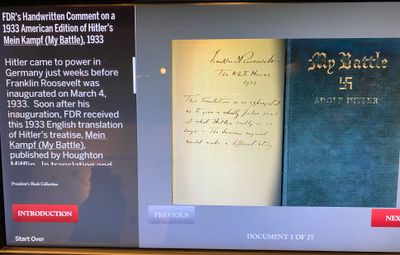 FDR's Handwritten Comment on a
1933 American Edition of Hitler's
Mein Kampf (My Battle), 1933
Hitler came to power in
Germany just weeks before
Franklin Roosevelt was
inaugurated on March 4,
1933. Soon after his
inauguration, FDR received
this 1933 English translation
of Hitler's treatise, Mein
Kampf (My Battle),
published by Houghton
Mifflin. In translating and
President's Book Collection
INTRODUCTION
Start Over
Franklin D Roosevelt
The White House
1933
This translation is so expurgated
as to give a wholly false view
of what Hitler really is or
says - The German original
would make a different story
My Battle
ADOLF HITLER
PREVIOUS
DOCUMENT 1 OF 27
NEX